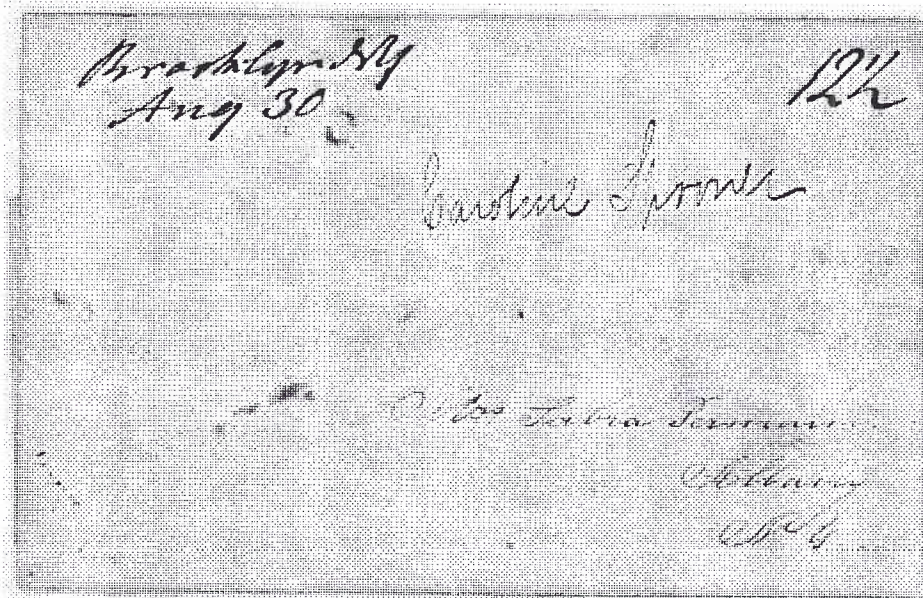 Brooklyn NY
Aug 30
12½
Caroline Spooner
Mrs
Albany
N Y